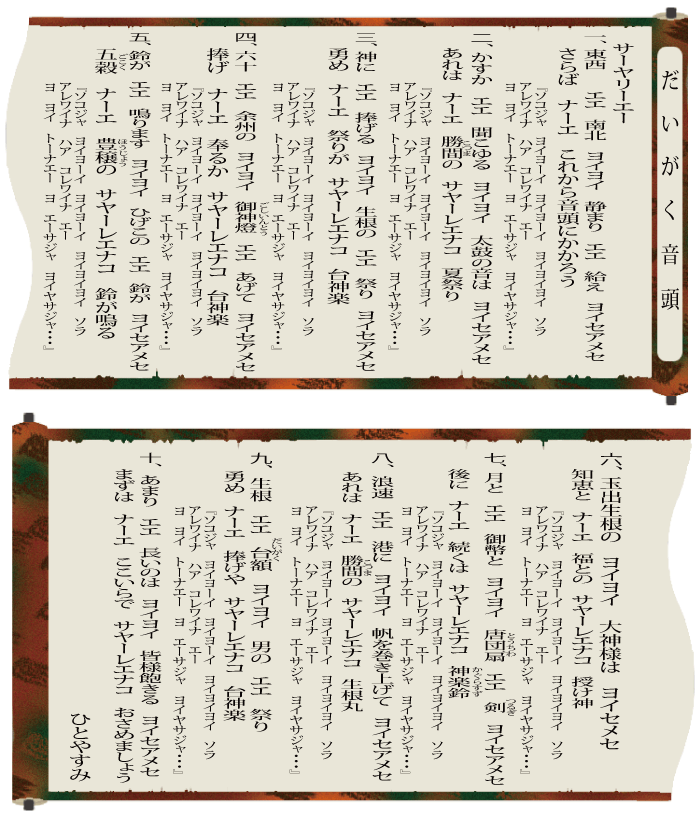 だいがく音頭
サーヤリーエー
一、東西 エエ 南北 ヨイヨイ 静まり エエ 給え ヨイセアメセ
さらば ナーエ これから音頭にかかろう
『ソコジャ ヨイヨーイ ヨイヨーイ ヨイヨイヨイ ソラ
アレワイナ ハア コレワイナ エー
ヨ ヨイ トーナエー ヨ エーサジャ ヨイヤサジャ・・・』
二、かすか エエ 聞こゆる ヨイヨイ 太鼓の音は ヨイセアメセ
あれは ナーエ 勝間の サヤーレエナコ 夏祭り
こつま
『ソコジャ ヨイヨーイ ヨイヨーイ ヨイヨイヨイ ソラ
アレワイナ ハア コレワイナ エー
ヨ ヨイ トーナエー ヨ エーサジャ ヨイヤサジャ・・・』
三、神に エエ 捧げる ヨイヨイ 生根の エエ 祭り ヨイセアメセ
勇め ナーエ 祭りが サヤーレエナコ 台神楽
『ソコジャ ヨイヨーイ ヨイヨーイ ヨイヨイヨイ ソラ
アレワイナ ハア コレワイナ エー
ヨ ヨイ トーナエー ヨ エーサジャ ヨイヤサジャ・・・』
四、六十 エエ 余州の ヨイヨイ 御神燈 エエ あげて ヨイセアメセ
ごしんとう
捧げ ナーエ 奉るか サヤーレエナコ 台神楽
『ソコジャ ヨイヨーイ ヨイヨーイ ヨイヨイヨイ ソラ
アレワイナ ハア コレワイナ エー
ヨ ヨイ トーナエー ヨ エーサジャ ヨイヤサジャ・・・』
五、鈴が エエ 鳴ります ヨイヨイ ひげこの エエ 鈴が ヨイセアメセ
五穀 ナーエ 豊穣の サヤーレエナコ 鈴が鳴る
ごこく ほうじょう
『ソコジャ ヨイヨーイ ヨイヨーイ ヨイヨイヨイ ソラ
アレワイナ ハア コレワイナ エー
ヨ ヨイ トーナエー ヨ エーサジャ ヨイヤサジャ・・・』
六、玉出生根の ヨイヨイ 大神様は ヨイセメセ
知恵と ナーエ 福との サヤーレエナコ 授け神
『ソコジャ ヨイヨーイ ヨイヨーイ ヨイヨイヨイ ソラ
アレワイナ ハア コレワイナ エー
ヨ ヨイ トーナエー ヨ エーサジャ ヨイヤサジャ・・・』
七、月と エエ 御幣と ヨイヨイ 唐団扇 エエ 剣 ヨイセアメセ
とうちわ つるぎ
後に ナーエ 続くは サヤーレエナコ 神楽鈴
かぐらすず
『ソコジャ ヨイヨーイ ヨイヨーイ ヨイヨイヨイ ソラ
アレワイナ ハア コレワイナ エー
ヨ ヨイ トーナエー ヨ エーサジャ ヨイヤサジャ・・・』
八、浪速 エエ 港に ヨイヨイ 帆を巻き上げて ヨイセアメセ
あれは ナーエ 勝間の サヤーレエナコ 生根丸
こつま
『ソコジャ ヨイヨーイ ヨイヨーイ ヨイヨイヨイ ソラ
アレワイナ ハア コレワイナ エー
ヨ ヨイ トーナエー ヨ エーサジャ ヨイヤサジャ・・・』
九、生根 エエ 台額 ヨイヨイ 男の エエ 祭り
だいがく
勇め ナーエ 捧げや サヤーレエナコ 台神楽
『ソコジャ ヨイヨーイ ヨイヨーイ ヨイヨイヨイ ソラ
アレワイナ ハア コレワイナ エー
ヨ ヨイ トーナエー ヨ エーサジャ ヨイヤサジャ・・・』
十、あまり エエ 長いのは ヨイヨイ 皆様飽きる ヨイセアメセ
まずは ナーエ ここいらで サヤーレエナコ おさめましょう
ひとやすみ